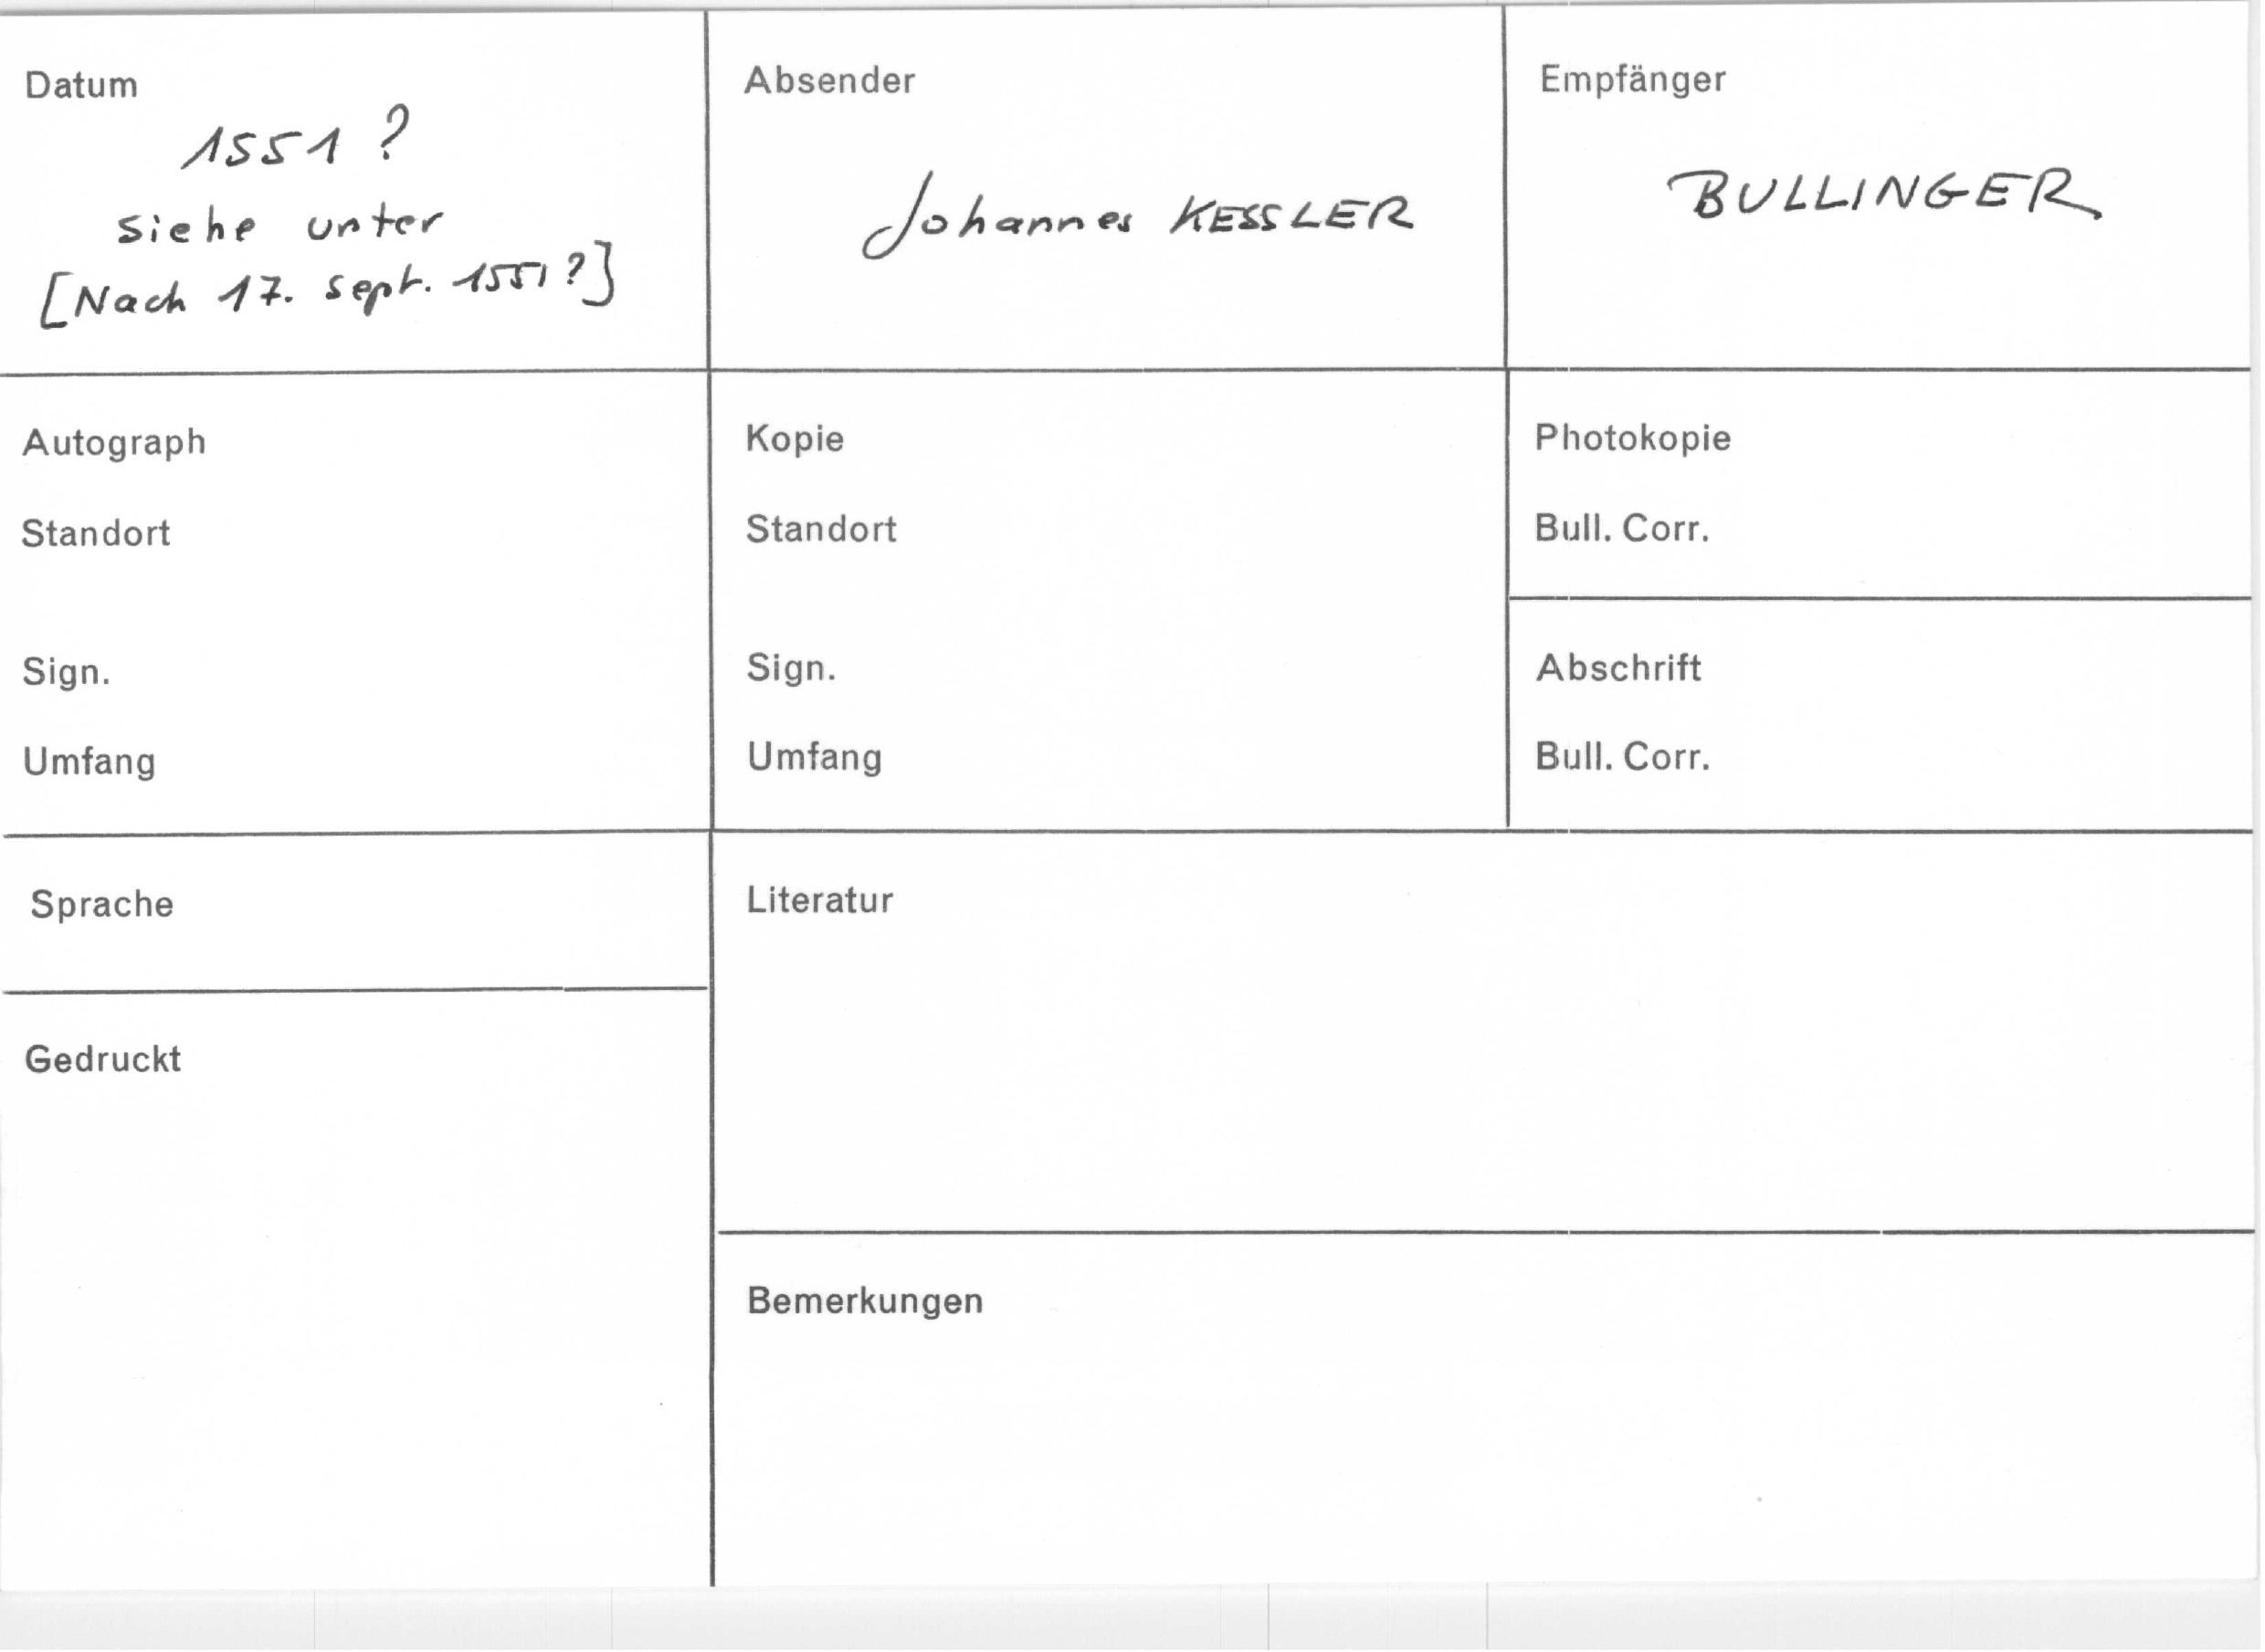 Datum
1551 ?
siehe unter
[Nach 17. Sept. 1551?]
Absender
Johannes KESSLER
Empfänger
BULLINGER
Autograph
Standort
Sign.
Umfang
Kopie
Standort
Sign.
Umfang
Photokopie
Bull. Corr.
Abschrift
Bull. Corr.
Sprache
Gedruckt
Literatur
Bemerkungen